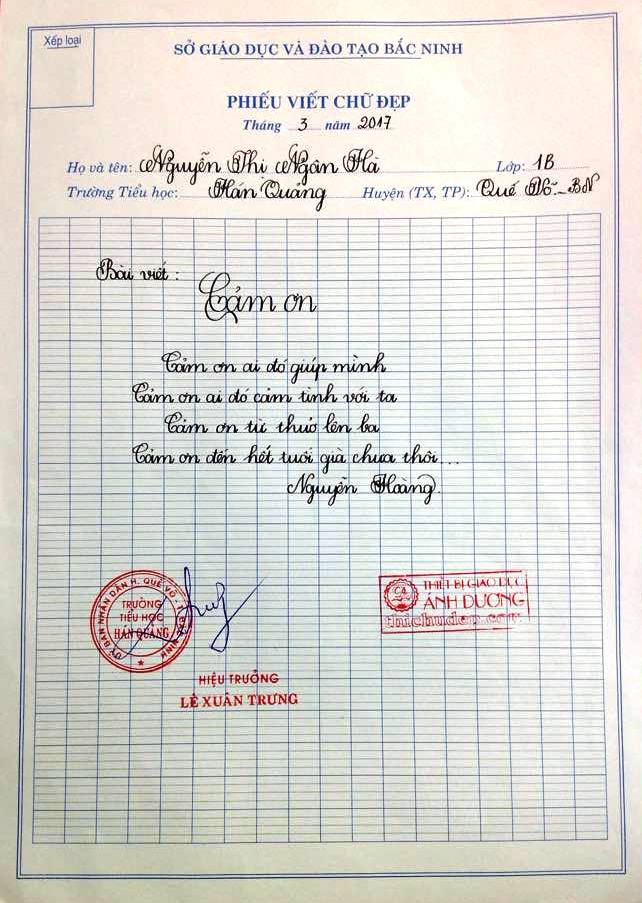 Xếp loại
SỞ GIÁO DỤC VÀ ĐÀO TẠO BẮC NINH
PHIẾU VIẾT CHỮ ĐẸP
Tháng 3 năm 2017
Họ và tên: Nguyễn Thi Ngân Hà Lớp: 1B
Trường Tiểu học: Hán Quảng Huyện (TX, TP): Quế Võ - BN
Bài viết :
Cảm ơn
Cảm ơn ai đó giúp mình
Cảm ơn ai đó cảm tình với ta
Cảm ơn từ thuở lên ba
Cảm ơn đến hết tuổi già chưa thôi...
Nguyễn Hoàng.
ỦY BAN NHÂN DÂN H. QUẾ VÕ - T. BẮC NINH
TRƯỜNG
TIỂU HỌC
HÁN QUẢNG
THIẾT BỊ GIÁO DỤC
ÁNH DƯƠNG
thichudep.com
HIỆU TRƯỞNG
LÊ XUÂN TRƯNG